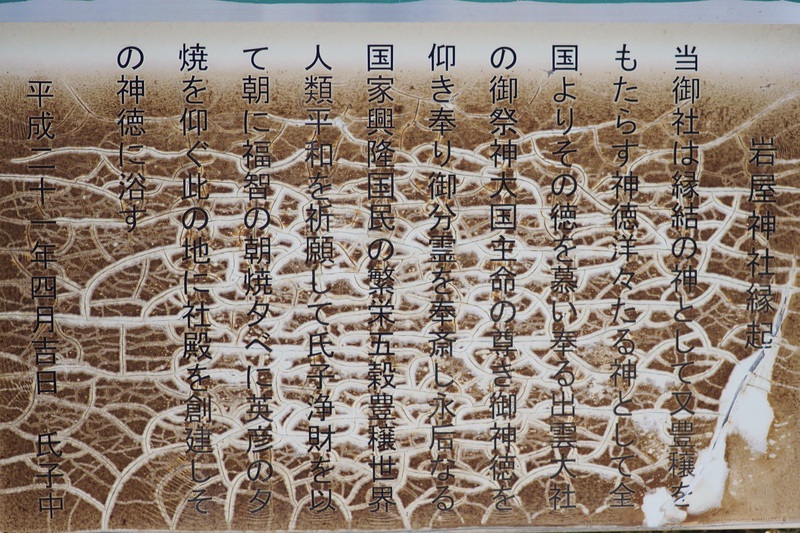 岩屋神社縁起
当御社は縁結の神として又豊穣を
もたらす神徳洋々たる神として全
国よりその徳を慕い奉る出雲大社
の御祭神大国主命の尊き御神徳を
仰き奉り御分霊を奉斎し永后なる
国家興隆国民の繁栄五穀豊穣世界
人類平和を祈願して氏子浄財を以
て朝に福智の朝焼夕べに英彦の夕
焼を仰ぐ此の地に社殿を創建しそ
の神徳に浴す
平成二十一年四月吉日　氏子中